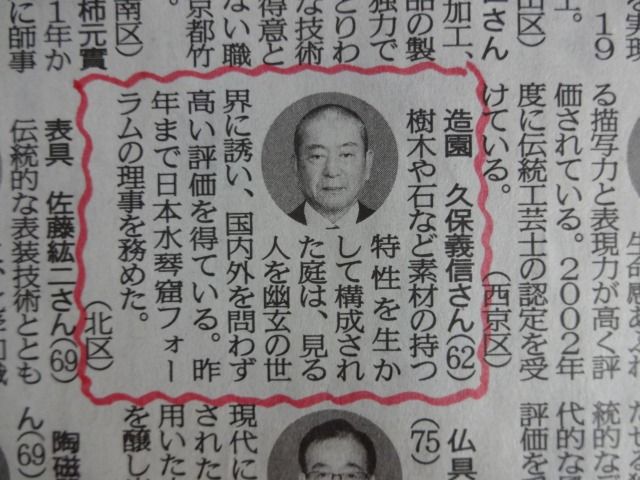 を実現
19
工。
山区)
さん
加工、
品の製
独力で
とりわ
な技術
得意と
ない職
京都竹
南区)
柿元實
1年か
に師事
る描写力と表現力が高く評
価されている。2002年
度に伝統工芸士の認定を受
けている。
(西京区)
造園 久保義信さん(62)
樹木や石など素材の持つ
特性を生か
して構成され
た庭は、見る
人を幽玄の世
界に誘い、国内外を問わず
高い評価を得ている。昨
年まで日本水琴窟フォー
ラムの理事を務めた。
(北区)
表具 佐藤紘二さん(69)
伝統的な表装技術ととも
統的な
代的な
評価を
仏具
(75)
現代に
された
用いた
を醸し
陶磁
ん(69)